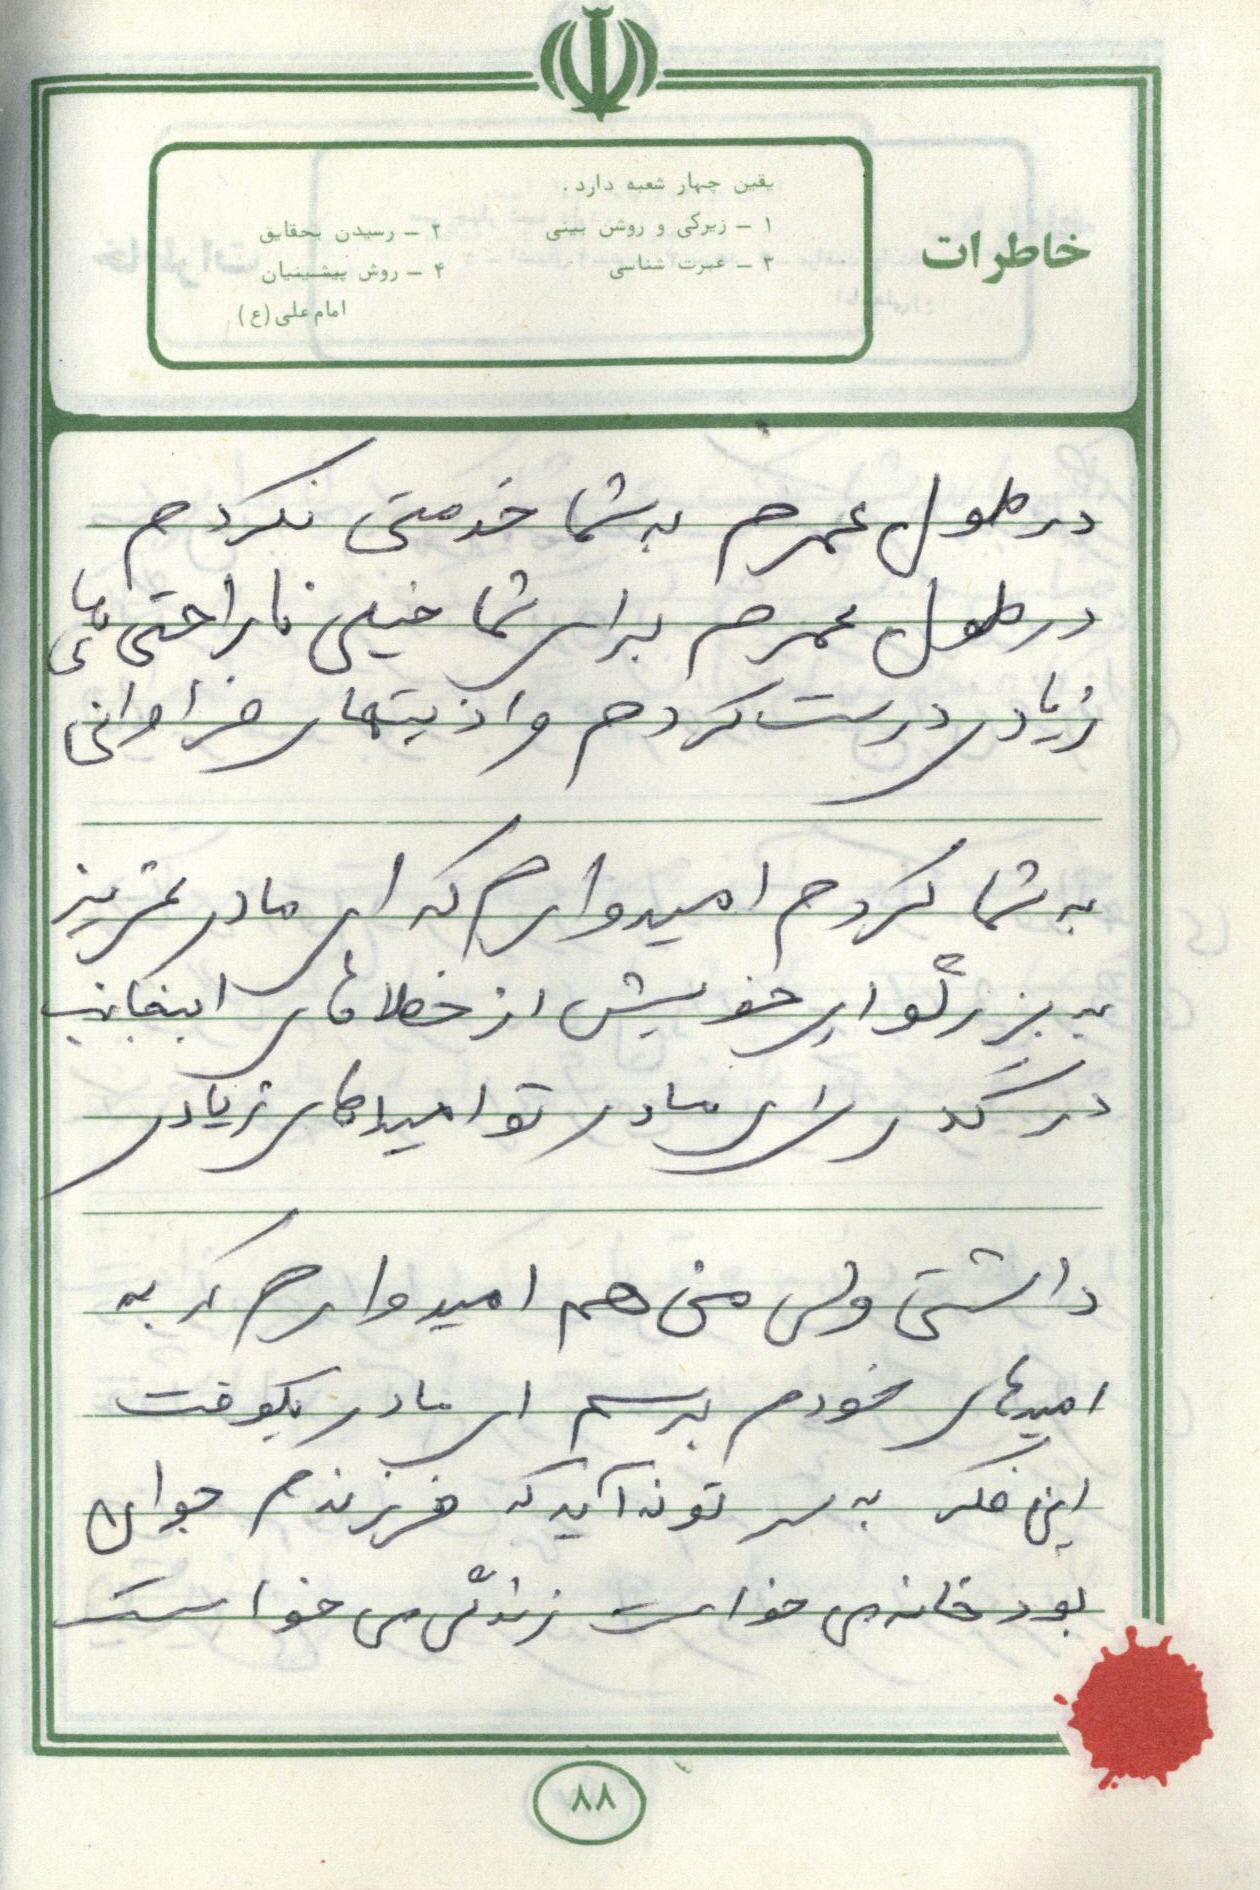 خاطرات
یقین چهار شعبه دارد.
۱ ـ زیرکی و روشن بینی ۲ ـ رسیدن بحقایق
۳ ـ عبرت شناسی ۴ ـ روش پیشینیان
امام علی (ع)
در طول عمرم به شما خدمتی نکردم
در طول عمرم برای شما خیلی ناراحتی های
زیادی درست کردم و اذیتهای فراوانی
به شما کردم امیدوارم که ای مادر عزیز
به بزرگواری خویش از خطاهای اینجانب
درگذری ای مادر تو امیدهای زیادی
داشتی ولی من هم امیدوارم که به
امیدهای خودم برسم ای مادر یکوقت
این فکر به سر تو نه آید که فرزندم جوان
بود خانه می خواست زندگی می خواست
۸۸